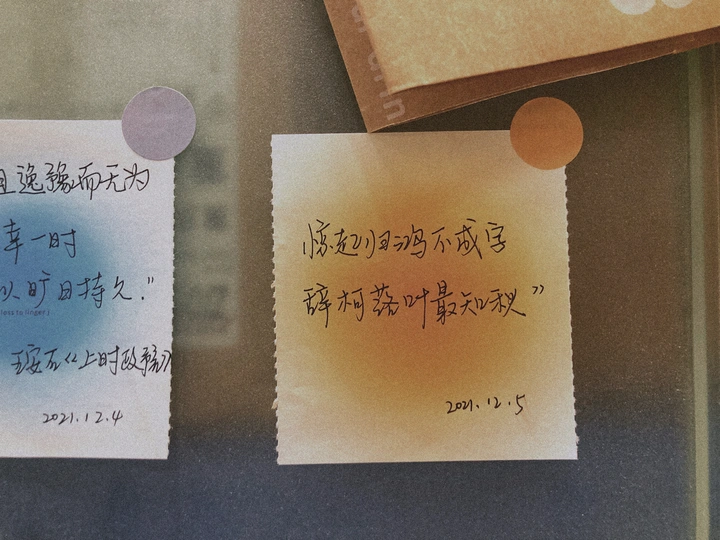 且逸豫而无为
幸一时
以旷日持久.”
less to linger.)
王安石《上时政疏》
2021.12.4
惊起归鸿不成字
辞柯落叶最知秋”
2021.12.5